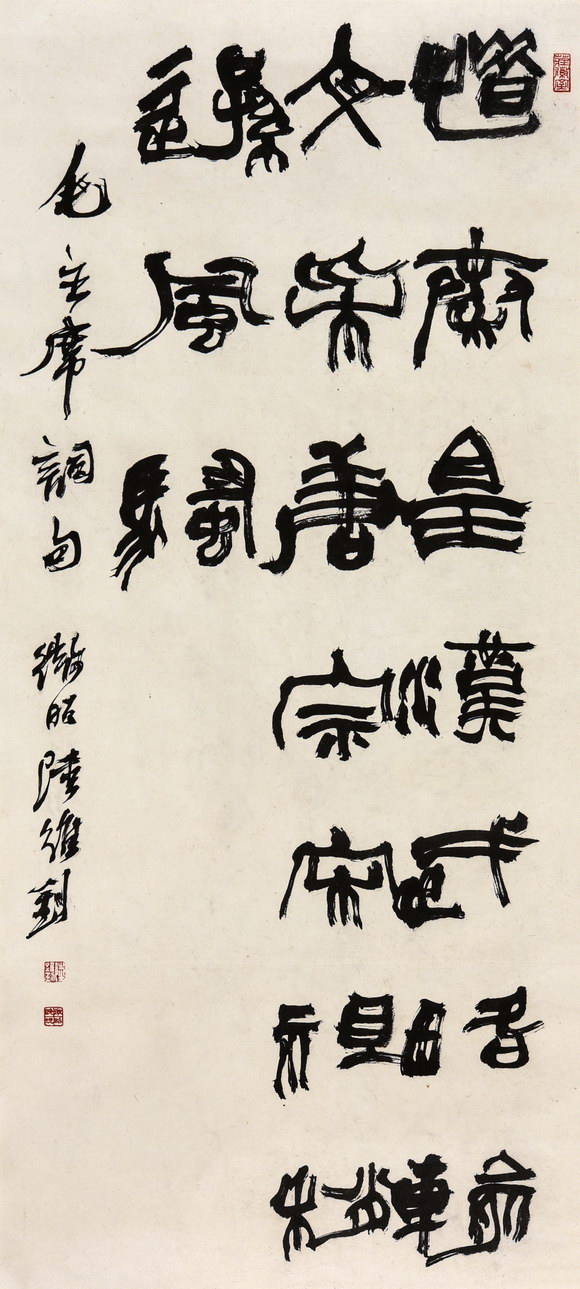 惜秦皇漢武略輸
文采唐宗宋祖稍
遜風騷
毛主席詞句 微昭陸維釗